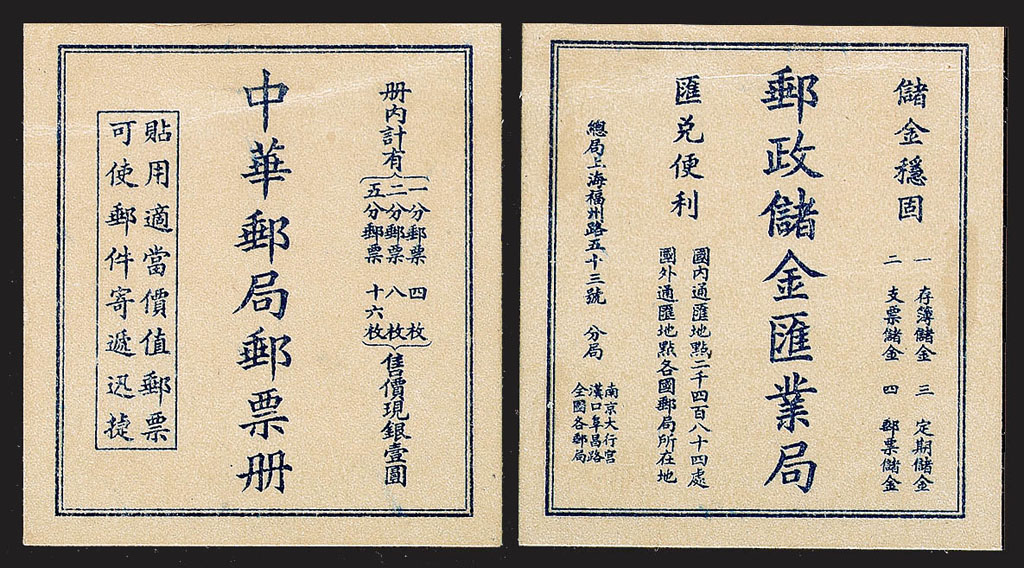 册內計有
一分郵票 四枚
二分郵票 八枚
五分郵票 十六枚
售價現銀壹圓
中華郵局郵票册
貼用適當價值郵票
可使郵件寄遞迅捷
儲金穩固
一 存簿儲金 三 定期儲金
二 支票儲金 四 郵票儲金
郵政儲金匯業局
匯兑便利
國內通匯地點二千四百八十四處
國外通匯地點各國郵局所在地
總局上海福州路五十三號 分局
南京大行宮
漢口阜昌路
全國各郵局